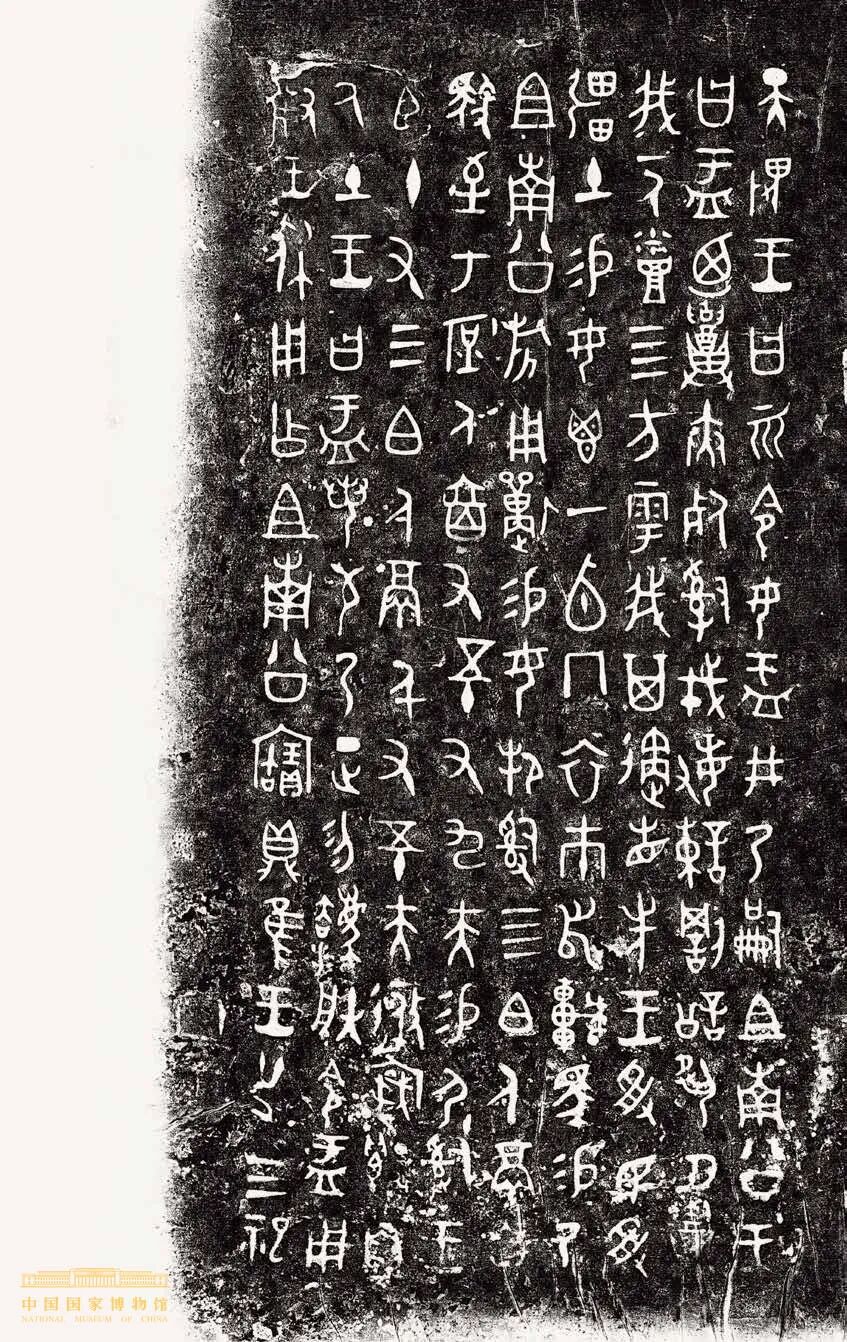 天畏王曰令女盂井乃嗣且南公王
曰盂廼召夾死𤔲戎敏諫罰訟夙夕召
我一人烝四方𩁹我其遹省先王受民受
疆土易女鬯一卣冂衣巿舄車馬易乃
且南公旂用狩易女邦𤔲四白人鬲自
馭至于庶人六百又五十又九夫易尸𤔲王
臣十又三白人鬲千又五十夫遷自
厥土王曰盂若敬乃正勿灋朕令盂用
對王休用乍且南公寶鼎隹王廿又三祀
中国国家博物馆
NATIONAL MUSEUM OF CHINA